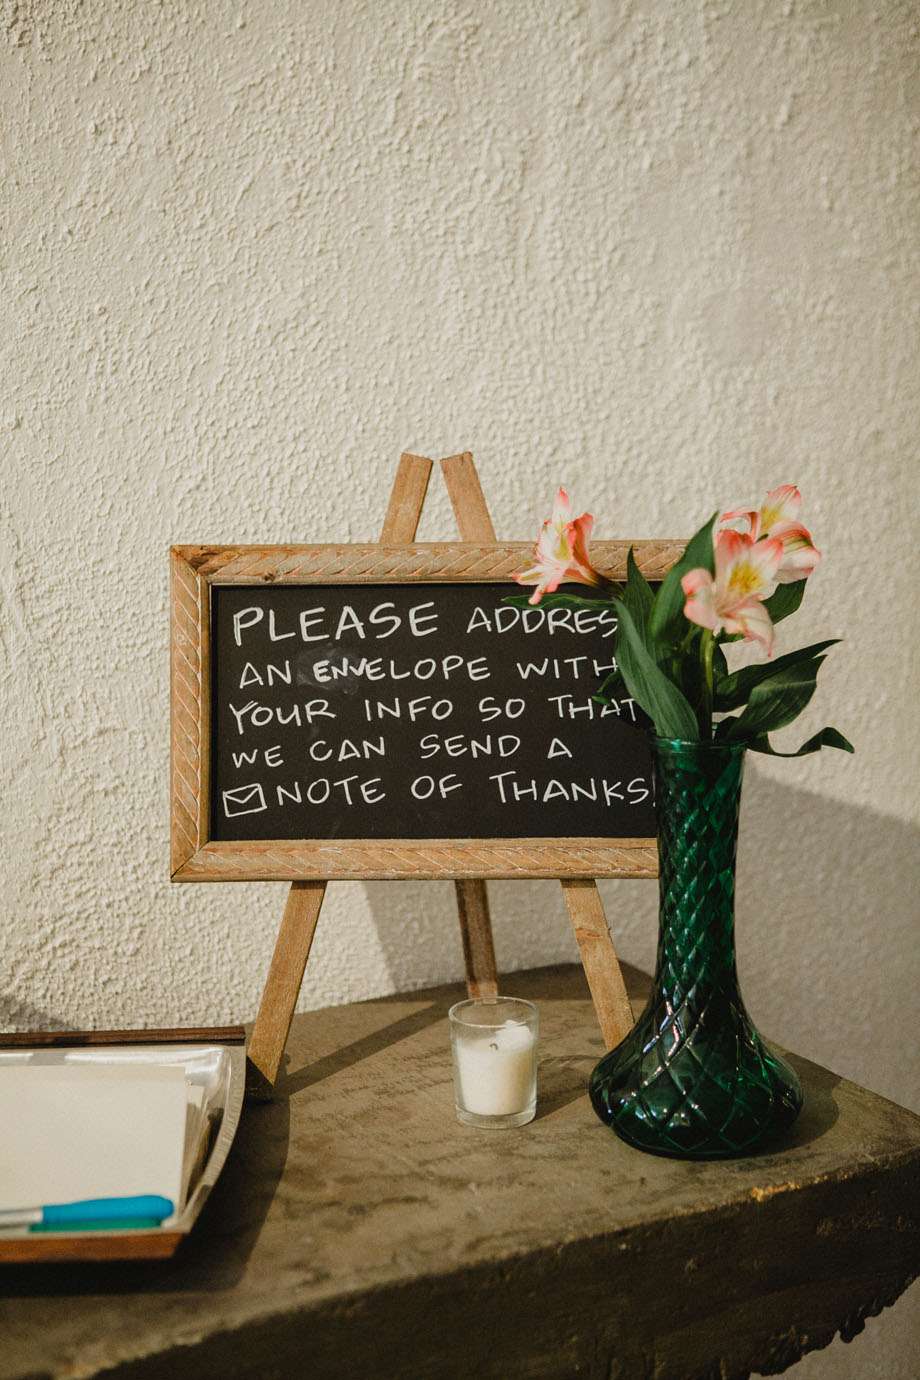 PLEASE ADDRES
AN ENVELOPE WITH
YOUR INFO SO THAT
WE CAN SEND A
NOTE OF THANKS!